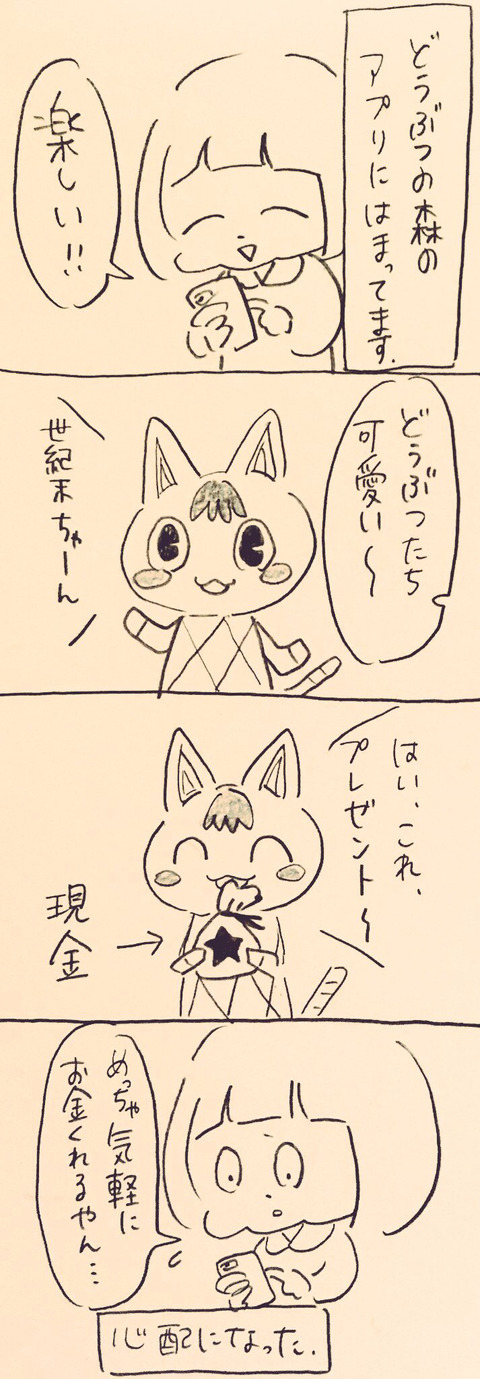 どうぶつの森の
アプリにはまってます.
楽しい!!
どうぶつたち
可愛い〜
世紀末ちゃーん
はい、これ、
プレゼント〜
現金
めっちゃ気軽に
お金くれるやん…
心配になった.